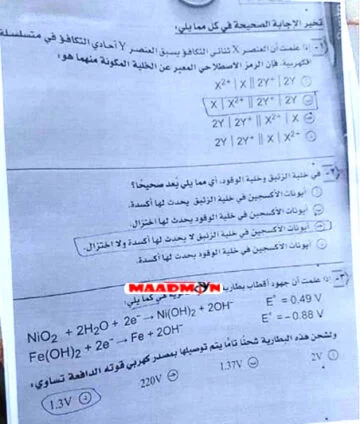 تخير الإجابة الصحيحة في كل مما يلي:
١- إذا علمت أن العنصر X ثنائي التكافؤ يسبق العنصر Y أحادي التكافؤ في متسلسلة
الكهربية. فإن الرمز الاصطلاحي المعبر عن الخلية المكونة منهما هو:
X²⁺ | X || 2Y⁺ | 2Y
X | X²⁺ || 2Y⁺ | 2Y
2Y | 2Y⁺ || X²⁺ | X
2Y | 2Y⁺ || X | X²⁺
٢- في خلية الزئبق وخلية الوقود، أي مما يلي يُعد صحيحًا؟
أيونات الأكسجين في خلية الزئبق يحدث لها أكسدة.
أيونات الأكسجين في خلية الوقود يحدث لها اختزال.
أيونات الأكسجين في خلية الزئبق لا يحدث لها أكسدة ولا اختزال.
أيونات الأكسجين في خلية الوقود يحدث لها أكسدة.
٣- إذا علمت أن جهود أقطاب بطارية كما يلي:
MAADMOYN
NiO₂ + 2H₂O + 2e⁻ → Ni(OH)₂ + 2OH⁻ E° = 0.49 V
Fe(OH)₂ + 2e⁻ → Fe + 2OH⁻ E° = −0.88 V
ولشحن هذه البطارية شحنًا تامًا يتم توصيلها بمصدر كهربي قوته الدافعة تساوي:
2V 1.37V 220V 1.3V